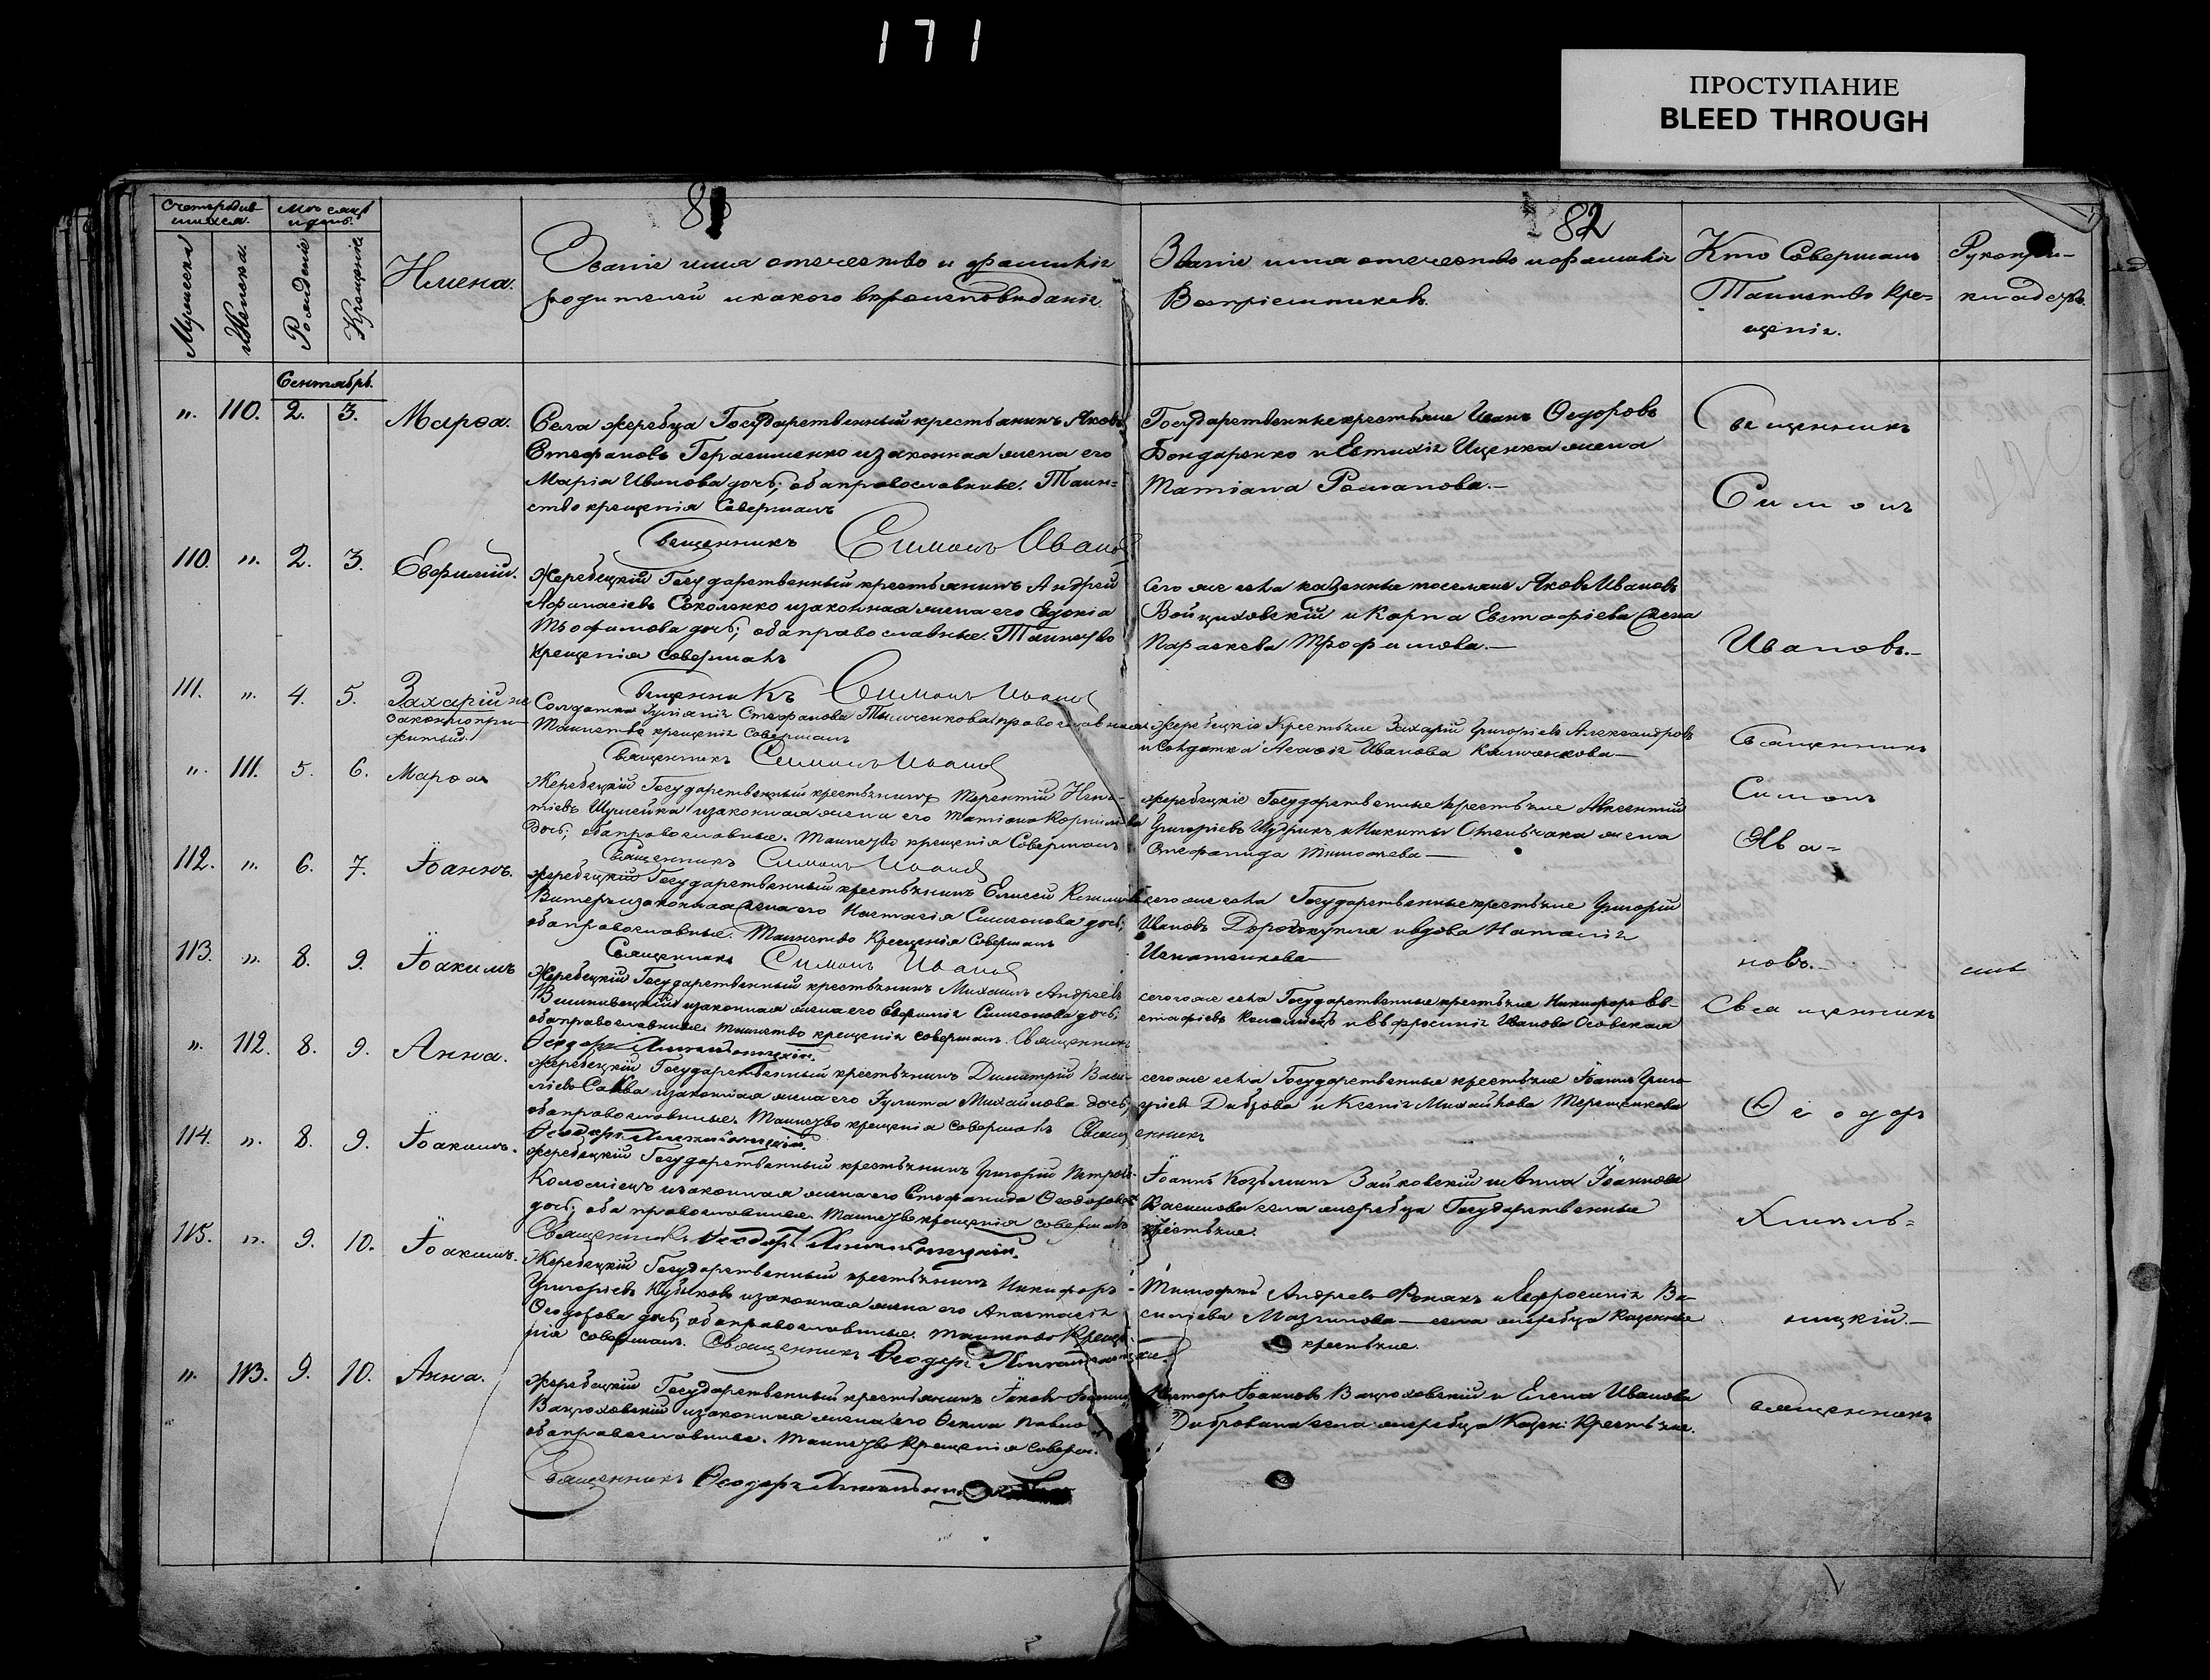 171
ПРОСТУПАНИЕ
BLEED THROUGH
81
82
Счетъ родив-
шихся.
Мѣсяцъ
и день.
Мужеска
Женска.
Рожденіе
Крещеніе
Имена.
Званіе имя отечество и фамилія
родителей и какого вѣроисповѣданія.
Званіе имя отечество и фамилія
Воспріемниковъ.
Кто Совершалъ
Таинство Кре-
щенія.
Рукопри-
кладств.
Сентябрь.
". 110. 2. 3. Марѳа.
Села жеребца Государственный крестьянинъ Яковъ
Стефановъ Герасименко и законная жена его
Марія Иванова дочь; оба православные. Таин=
ство крещенія Совершалъ
Священникъ Симонъ Ивановъ
Государственные крестьяне Иванъ Ѳедоровъ
Бондаренко и Евтихія Ищенка жена
Татіана Романова.—
Священникъ
Симонъ
110. ". 2. 3. Евфимій.
Жеребецкій Государственный крестьянинъ Андрей
Афанасіевъ Соколенко и законная жена его Евдокія
дочь; оба православные. Таинство
крещенія совершалъ
Священникъ Симонъ Ивановъ
Сего же села казенные поселяне Яковъ Ивановъ
Войциховскій и Карпа Евстафіева жена
Параскева Трофимова.—
Ивановъ.—
111. ". 4. 5. Захарій не
законнопри-
житый.
Солдатка Іуліанія Стефанова православная
Таинство крещенія Совершалъ
Священникъ Симонъ Ивановъ
Жеребецкіе Крестьяне Захарій Григоріевъ Александровъ
и Солдатка Агафія Иванова—
Священникъ
". 111. 5. 6. Марѳа
Жеребецкій Государственный крестьянинъ Терентій Игна-
тіевъ Шумейка и законная жена его Татіана Корнилова
дочь; оба православные. Таинство крещенія Совершалъ
Священникъ Симонъ Ивановъ
Жеребецкіе Государственные крестьяне Авксентій
Григоріевъ и Никиты жена
Стефанида Тимоѳеева—
Симонъ
Ива=
112. ". 6. 7. Іоаннъ.
Жеребецкій Государственный крестьянинъ Елисей
и законная жена его Настасія Симеонова дочь;
оба православные. Таинство Крещенія Совершалъ
Священникъ Симонъ Ивановъ
сего же села Государственные крестьяне Григорій
Ивановъ и вдова Наталія
Игнатенкова—
новъ.—
113. ". 8. 9. Іоакимъ
Жеребецкій Государственный крестьянинъ Михаилъ Андреевъ
Вишнивецкій и законная жена его Евфимія Симеонова дочь;
оба православные. таинство крещенія совершалъ. Священникъ
Ѳеодоръ Хмельницкій.
сего же села Государственные крестьяне Никифоръ Ев-
стафіевъ и Евфросинія Иванова Осовская
Священникъ
". 112. 8. 9. Анна.
Жеребецкій Государственный крестьянинъ Димитрій Васи-
ліевъ Савва и законная жена его Іулита Михайлова дочь;
оба православные. Таинство крещенія совершалъ Священникъ
Ѳеодоръ Хмельницкій.
сего же села Государственные крестьяне Іоаннъ Григо-
ріевъ Диброва и Ксенія Михайлова Терещенкова
Ѳеодоръ
114. ". 8. 9. Іоакимъ.
Жеребецкій Государственный крестьянинъ Григорій Петровъ
Коломіецъ и законная жена его Стефанида Ѳеодорова
дочь; оба православные. Таинство крещенія совершалъ
Священникъ Ѳеодоръ Хмельницкій.
Іоаннъ Козьминъ Зайковскій и Анна Іоаннова
села жеребца Государственные
крестьяне.
Хмель=
115. ". 9. 10. Іоакимъ.
Жеребецкій Государственный крестьянинъ Никифоръ
Григоріевъ и законная жена его Анастасія
Ѳеодорова дочь; оба православные. таинство Креще-
нія совершалъ. Священникъ Ѳеодоръ Хмельницкій.
Тимоѳей Андреевъ и Евфросинія Ва-
силіева — села жеребца Казенные
крестьяне.
ницкій.—
". 113. 9. 10. Анна.
Жеребецкій Государственный крестьянинъ Іаковъ
и законная жена его
оба православные. Таинство Крещенія соверш.
Священникъ Ѳеодоръ
Несторъ Іоанновъ и Елена Иванова
села жеребца Казен: Крестьяне.
Священникъ